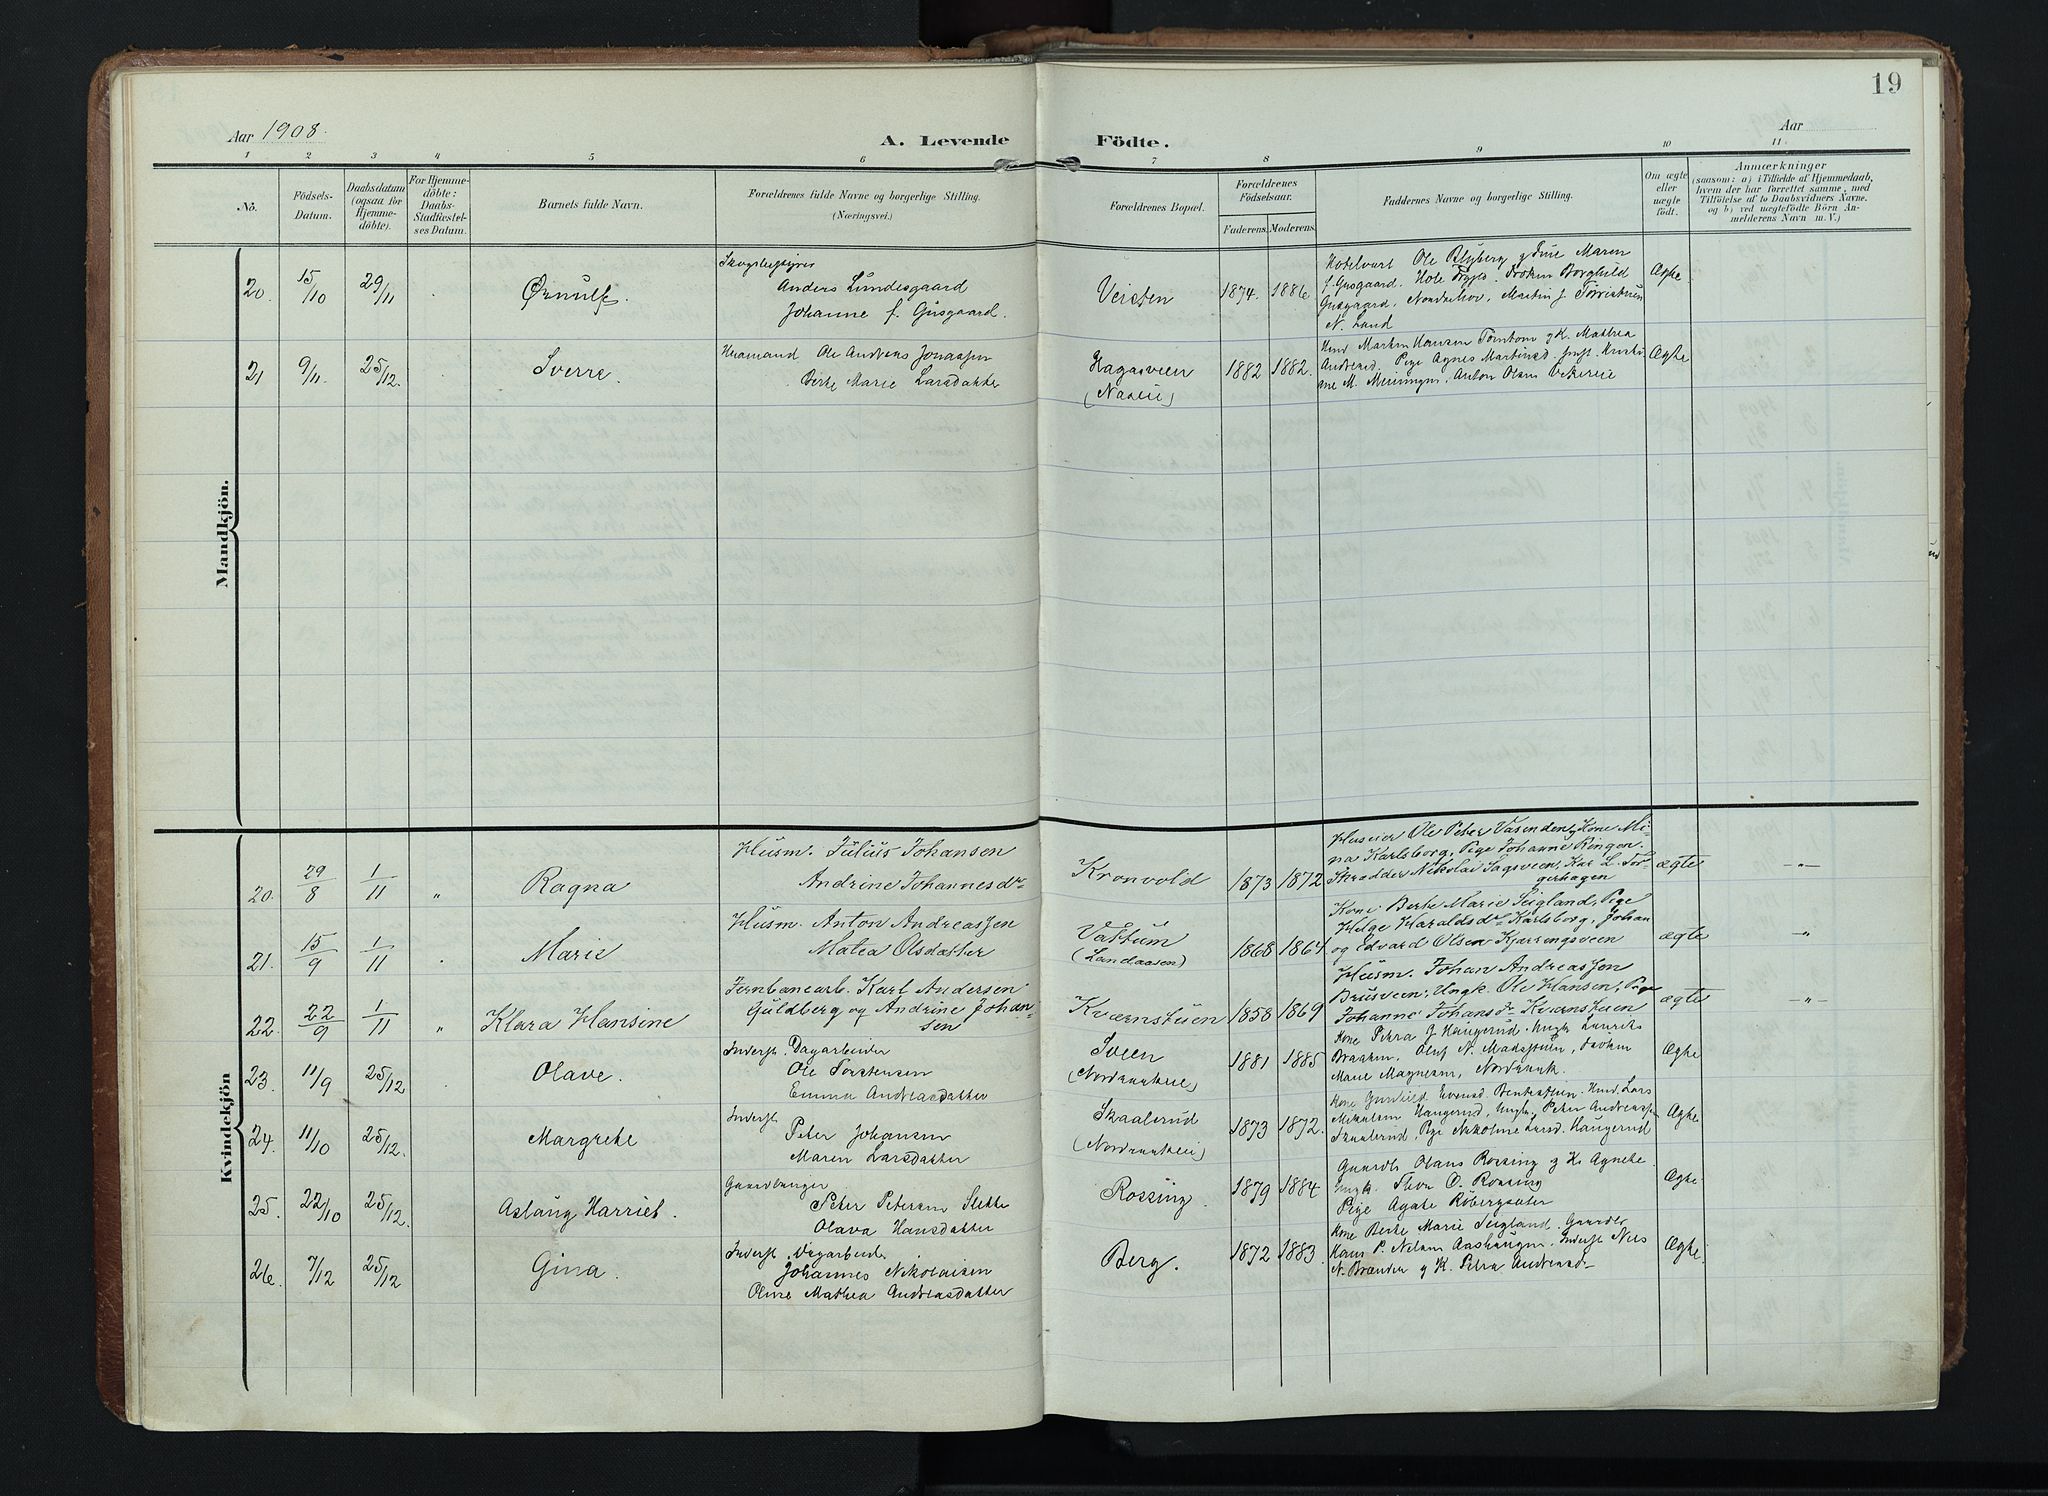 19
Aar 1908.
A. Levende Födte.
Aar
1 2 3 4 5 6 7 8 9 10 11
No.
Födsels-Datum.
Daabsdatum (ogsaa for Hjemme-döbte).
For Hjemme-döbte: Daabs-Stadfæstel-ses Datum.
Barnets fulde Navn.
Forældrenes fulde Navne og borgerlige Stilling.
(Næringsvei.)
Forældrenes Bopæl.
Forældrenes Födselsaar.
Faderens. Moderens.
Faddernes Navne og borgerlige Stilling.
Om ægte eller uægte födt.
Anmærkninger
(saasom: a) i Tilfælde af Hjemmedaab,
hvem der har forrettet samme, med
Tilföielse af to Daabsvidners Navne,
og b) ved uægtefödte Börn An-
melderens Navn m. V.)
Mandkjön.
20. 15/10 29/11 Ørnulf.
Anders Lundesgaard
Johanne f. Gusgaard.
Veisten 1874. 1886
Ole Blyberg
f. Gusgaard. Hole Borghild
Gusgaard, Martin J.
N. Land
Ægte
21 9/11. 25/12. Sverre.
Ole Andreas Jonassen
Berte Marie Larsdatter
Hagasveen
1882 1882.
Martin Hansen
Pige Agnes Martinsd.
Anton Olsen
Ægte
Kvindekjön
20. 29/8 1/11 " Ragna
Husm. Julius Johansen
Andrine Johannesdr
Kronvold 1873 1872
Ole Peter Vasenden, Kone Mi-
na Karlsborg, Pige Johanne Ringen.
Skrædder Nikolai Sagsveen, Kar L. Tor-
gerhagen
ægte -"-
21. 15/9 1/11 Marie
Husm. Anton Andreassen
Matea Olsdatter
Vattum
(Landaasen)
1868 1864
Kone Berte Marie Seigland, Pige
Helge Haraldsdr Karlsborg, Johan
og Edvard Olsen Kjærringsveen
ægte "
22. 22/9 1/11 " Klara Hansine
Jernbanearb. Karl Andersen
Guldberg og Andrine Johan-
sen
Kværnstuen 1858 1869
Husm. Johan Andreassen
Brusveen, Ungk. Ole Hansen, Pige
Johanne Johansdr Kværnstuen
ægte -"-
23. 11/9 25/12 Olave.
Inderst. Dagarbeider
Ole Torstensen
Emma Andreasdatter
Sveen
1881 1885
Kone Petra J. Haugerud. Ungk. Laurits
Braaten, Oluf N. Madsstuen,
Marie Magnesen,
Ægte
24. 11/10 25/12. Margrethe
Inderst
Peter Johansen
Maren Larsdatter
Skaalerud
1873 1872.
Kone Gunhild Evensd. Lars
Mikkelsen Haugerud, Ungk. Peter
Skaalerud, Pige Nikoline Larsd. Haugerud
Ægte
25. 22/10 25/12. Aslaug Harriet.
Gaardbruger
Peter Petersen Slette
Olava Hansdatter
Rossing. 1879 1884
Gaardbr Olaus Rossing
Ungk. Rossing
Pige Agate Röbergsæter
Ægte
26. 7/12 25/12 Gina.
Inderst. Dagarbeid.
Johannes Nikolaisen
Oline Mathea Andreasdatter
Berg. 1872 1883.
Kone Berte Marie Seigland. Gaardbr
Hans P. Nilsen Aashaugen, Inderst Nils
N. Brænden
Ægte